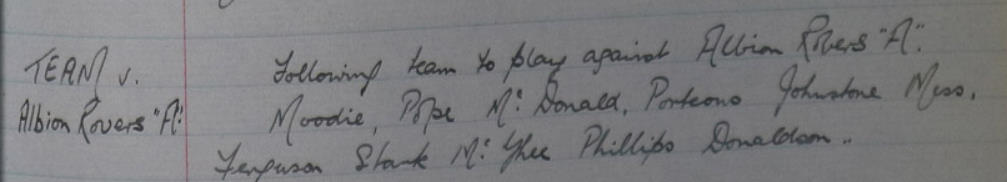 TEAM v.
Albion Rovers "A".
Following team to play against Albion Rovers "A".
Moodie, Pope Mc. Donald, Porteous Johnstone
Ferguson Stark Mc. Ghee Phillips Donaldson..